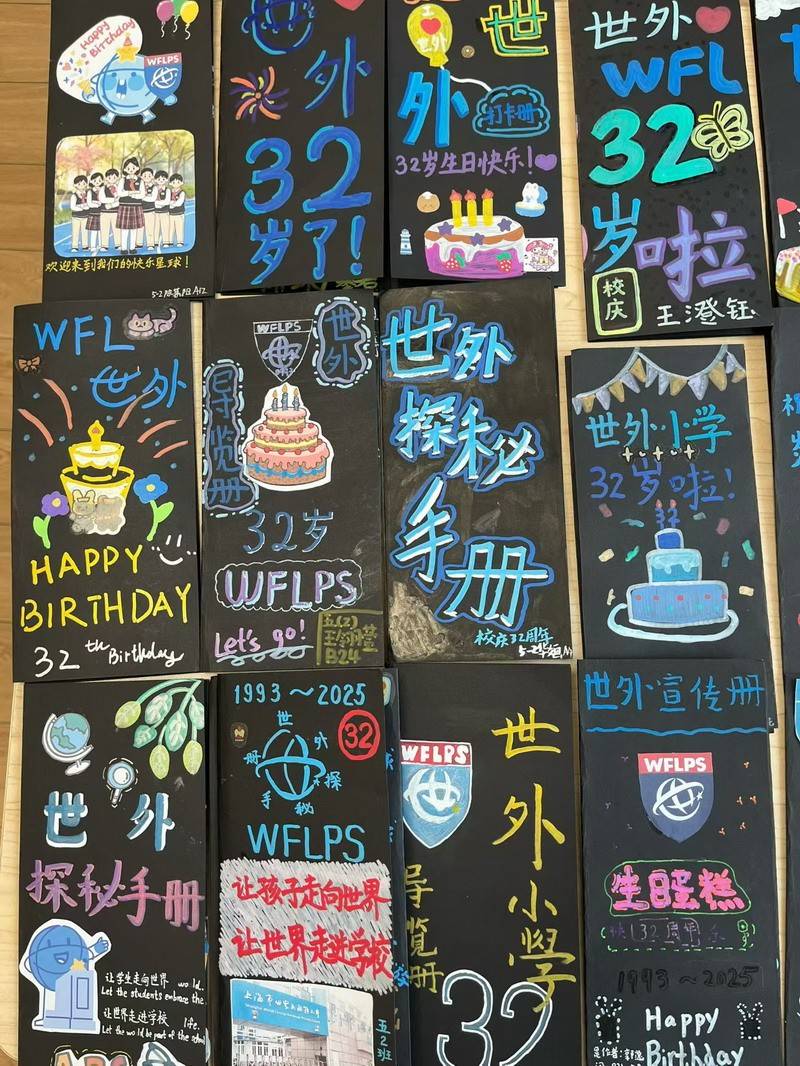 Happy
Birthday
WFLPS
欢迎来到我们的快乐星球!
外
32
岁了!
世
世外
外
打卡册
32岁生日快乐!
世外
WFL
32
岁啦
校庆
王澄钰
WFL
世外
HAPPY
BIRTHDAY
32th Birthday
WFLPS
世外
导览册
32岁
WFLPS
Let's go!
五(2)
B24
世外
探秘
手册
校庆32周年
世外小学
32岁啦!
32
世外
探秘手册
让学生走向世界
Let the students embrace the world.
让世界走进学校
Let the world be part of the school life.
1993~2025
32
世外探秘手册
WFLPS
让孩子走向世界
让世界走进学校
五2班
WFLPS
世外小学
导览册
32
世外宣传册
WFLPS
生日蛋糕
快32周年乐
1993~2025
Happy
Birthday